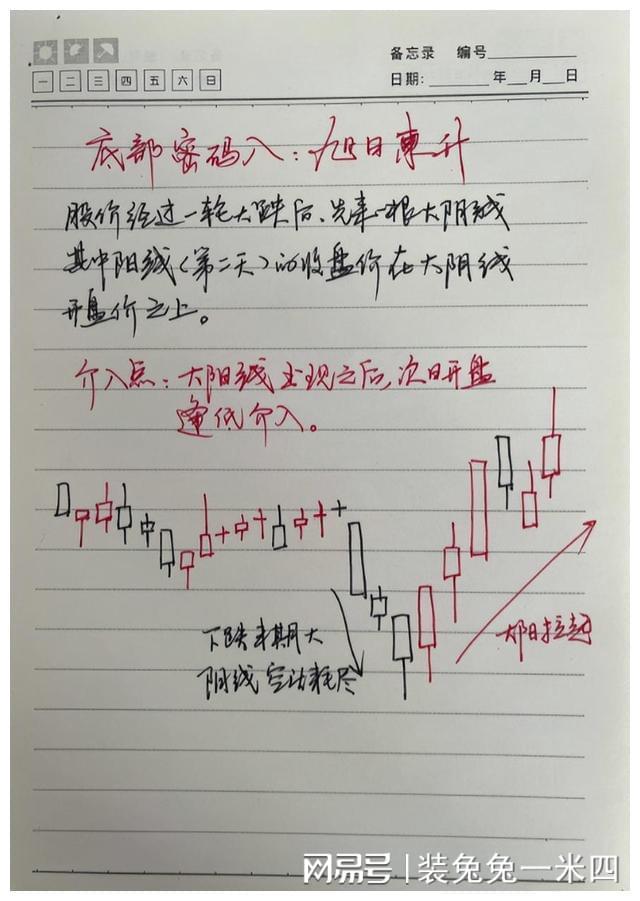 备忘录 编号
一 二 三 四 五 六 日
日期: 年 月 日
底部密码八：旭日東升
股价经过一轮大跌后、先来一根大阴线
其中阳线（第二天）的收盘价在大阴线
开盘价之上。
介入点：大阳线出现之后，次日开盘
逢低介入。
下跌末期大
阴线空头耗尽
太阳拉起
网易号 | 装兔兔一米四